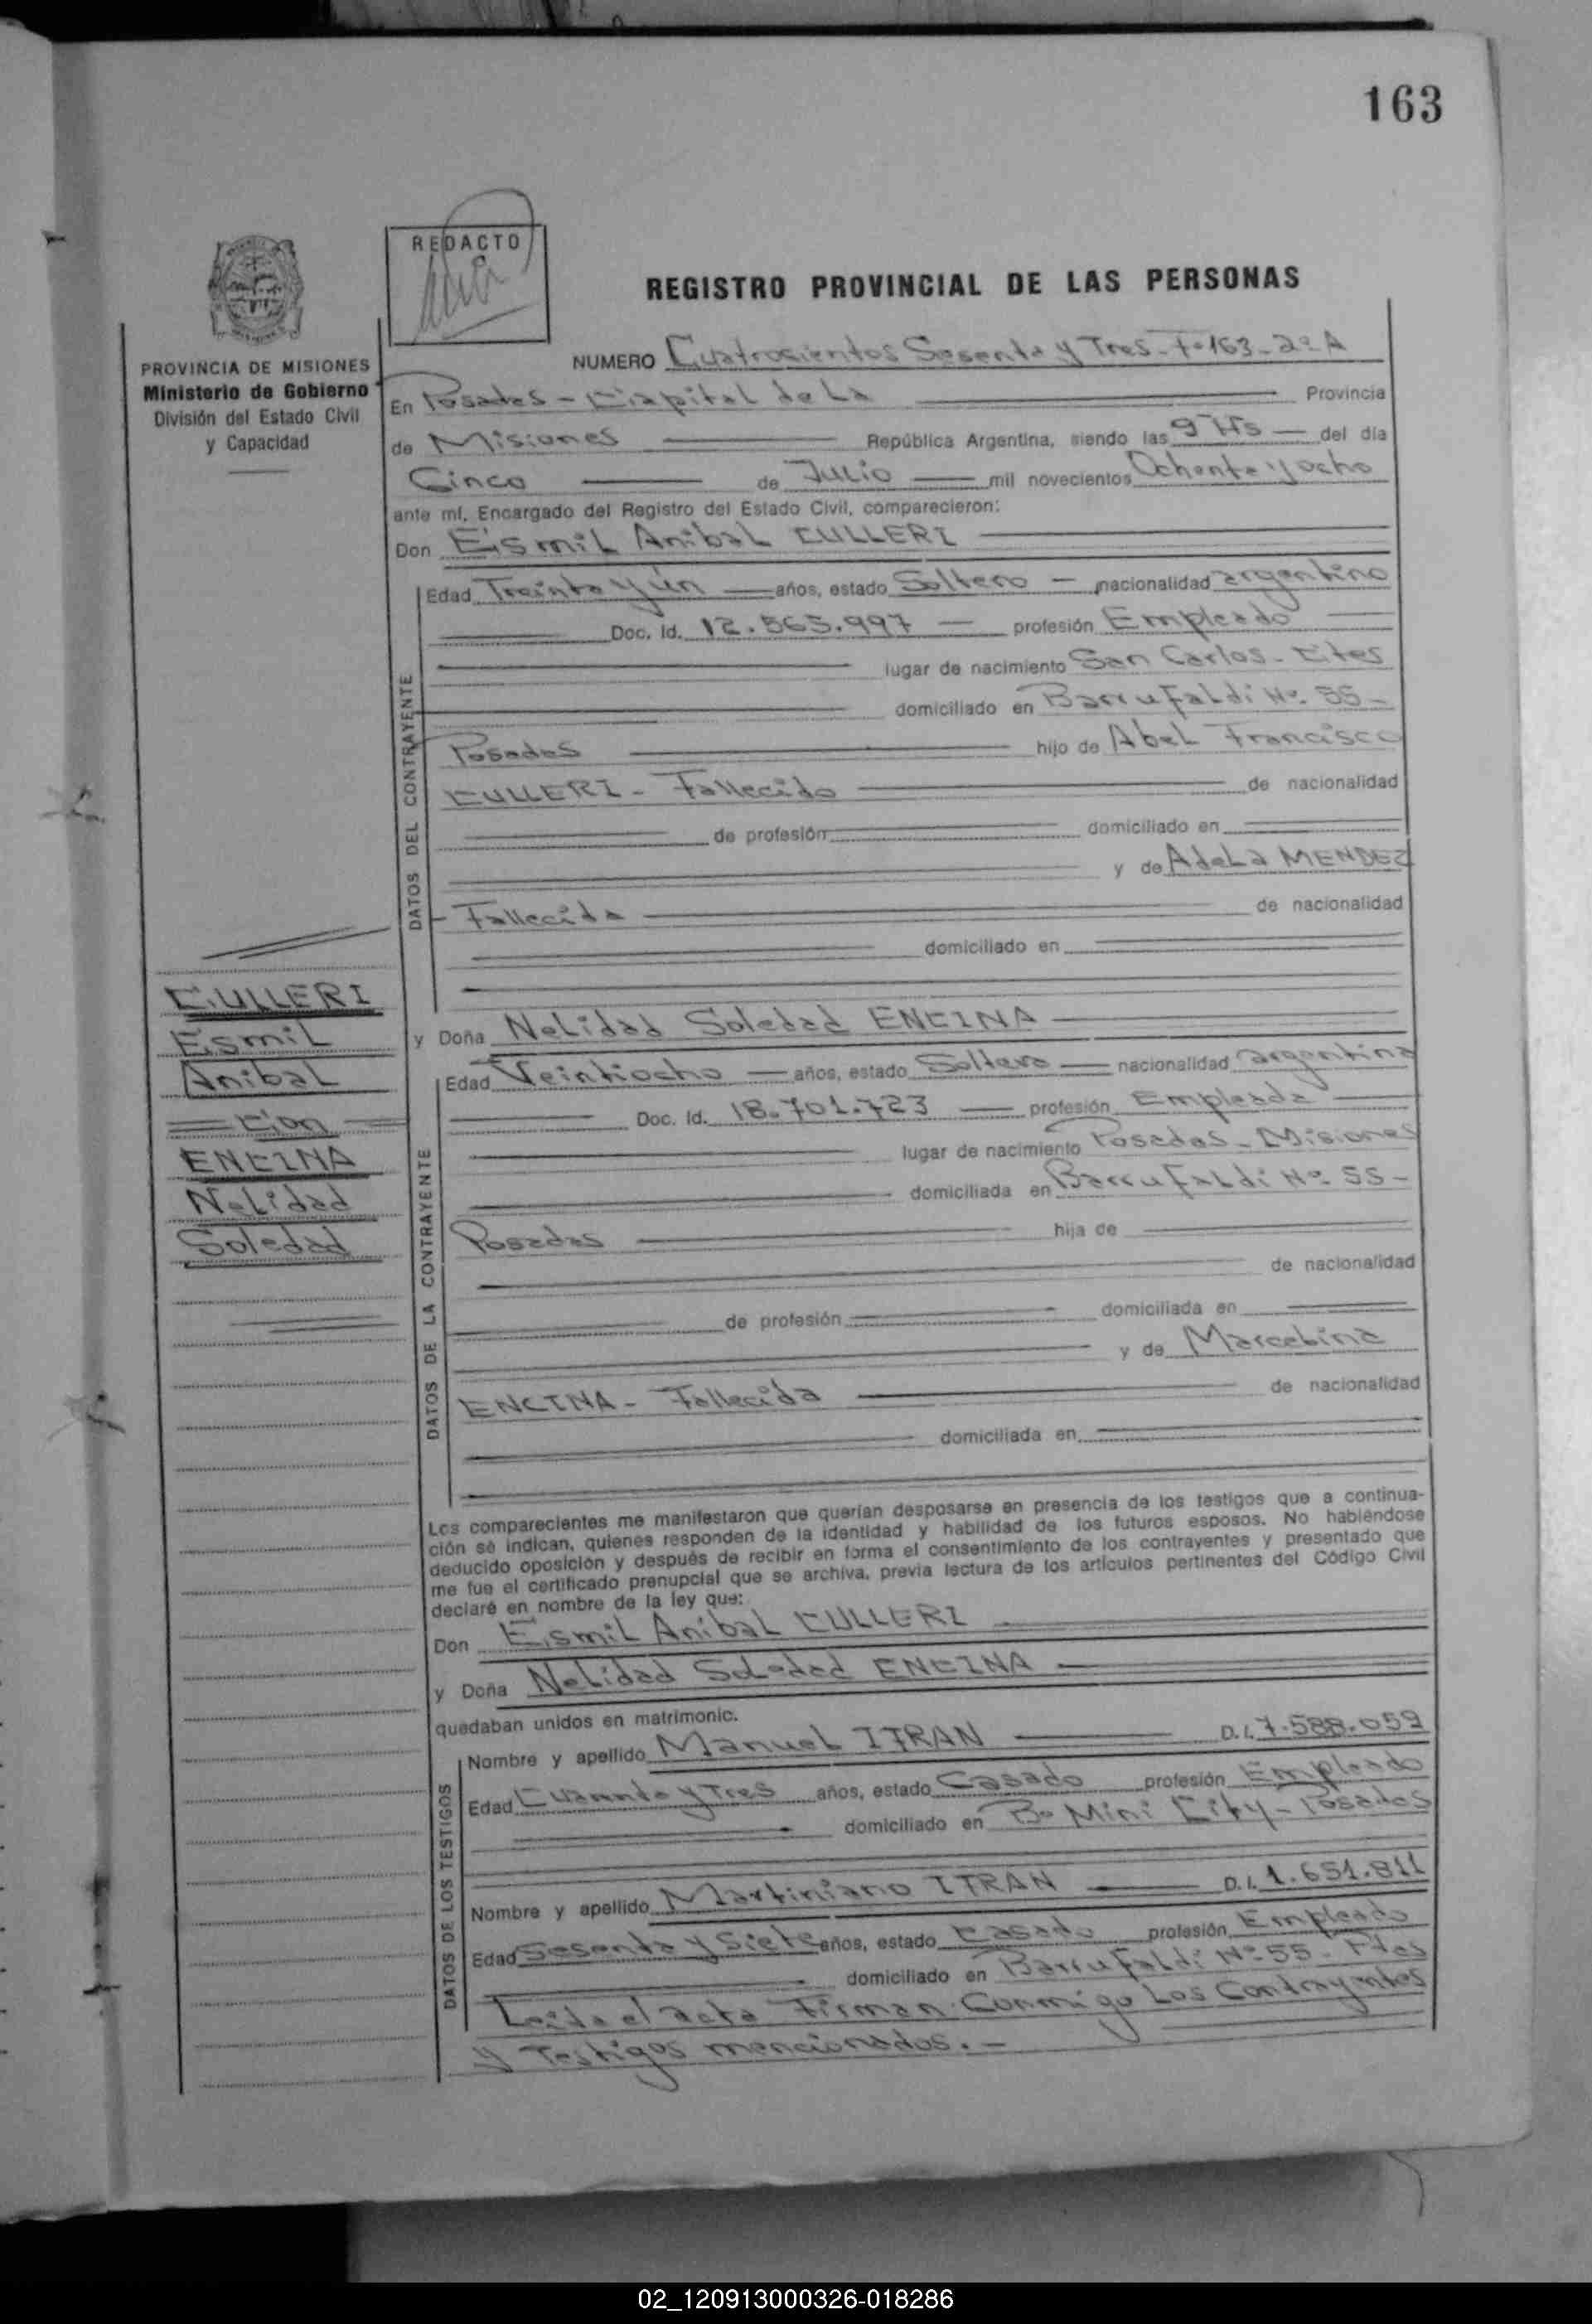 163
REDACTO
REGISTRO PROVINCIAL DE LAS PERSONAS
PROVINCIA DE MISIONES
Ministerio de Gobierno
División del Estado Civil
y Capacidad
NUMERO Cuatrosientos Sesenta y Tres - Fº 163 - 2º A
En Posadas - Capital de La Provincia
de Misiones República Argentina, siendo las 9 Hs del día
Cinco de Julio mil novecientos Ochenta y ocho
ante mí, Encargado del Registro del Estado Civil, comparecieron:
Don Eismil Anibal CULLERI
DATOS DEL CONTRAYENTE
Edad Treinta y ún años, estado Soltero nacionalidad argentino
Doc. Id. 12.565.997 profesión Empleado
lugar de nacimiento San Carlos - Ctes
domiciliado en Barrufaldi Nº 55 -
Posadas hijo de Abel Francisco
CULLERI - Fallecido de nacionalidad
de profesión domiciliado en
y de Adela MENDEZ
- Fallecida de nacionalidad
domiciliado en
CULLERI
Eismil
Anibal
= Con =
ENCINA
Nelidad
Soledad
y Doña Nelidad Soledad ENCINA
DATOS DE LA CONTRAYENTE
Edad Veintiocho años, estado Soltera nacionalidad argentina
Doc. Id. 18.701.723 profesión Empleada
lugar de nacimiento Posadas - Misiones
domiciliada en Barrufaldi Nº 55 -
Posadas hija de
de nacionalidad
de profesión domiciliada en
y de Marcebina
ENCINA - Fallecida de nacionalidad
domiciliada en
Los comparecientes me manifestaron que querían desposarse en presencia de los testigos que a continua-
ción se indican, quienes responden de la identidad y habilidad de los futuros esposos. No habiéndose
deducido oposición y después de recibir en forma el consentimiento de los contrayentes y presentado que
me fue el certificado prenupcial que se archiva, previa lectura de los artículos pertinentes del Código Civil
declaré en nombre de la ley que:
Don Eismil Anibal CULLERI
y Doña Nelidad Soledad ENCINA
quedaban unidos en matrimonio.
DATOS DE LOS TESTIGOS
Nombre y apellido Manuel ITRAN D.I. 7.588.059
Edad Cuarenta y Tres años, estado Casado profesión Empleado
domiciliado en Bº Mini City - Posadas
Nombre y apellido Martiniano ITRAN D.I. 1.651.811
Edad Sesenta y Siete años, estado Casado profesión Empleado
domiciliado en Barrufaldi Nº 55 - Pdas
Leida el acta Firman Conmigo Los Contrayentes
y Testigos mencionados. -
02_120913000326-018286